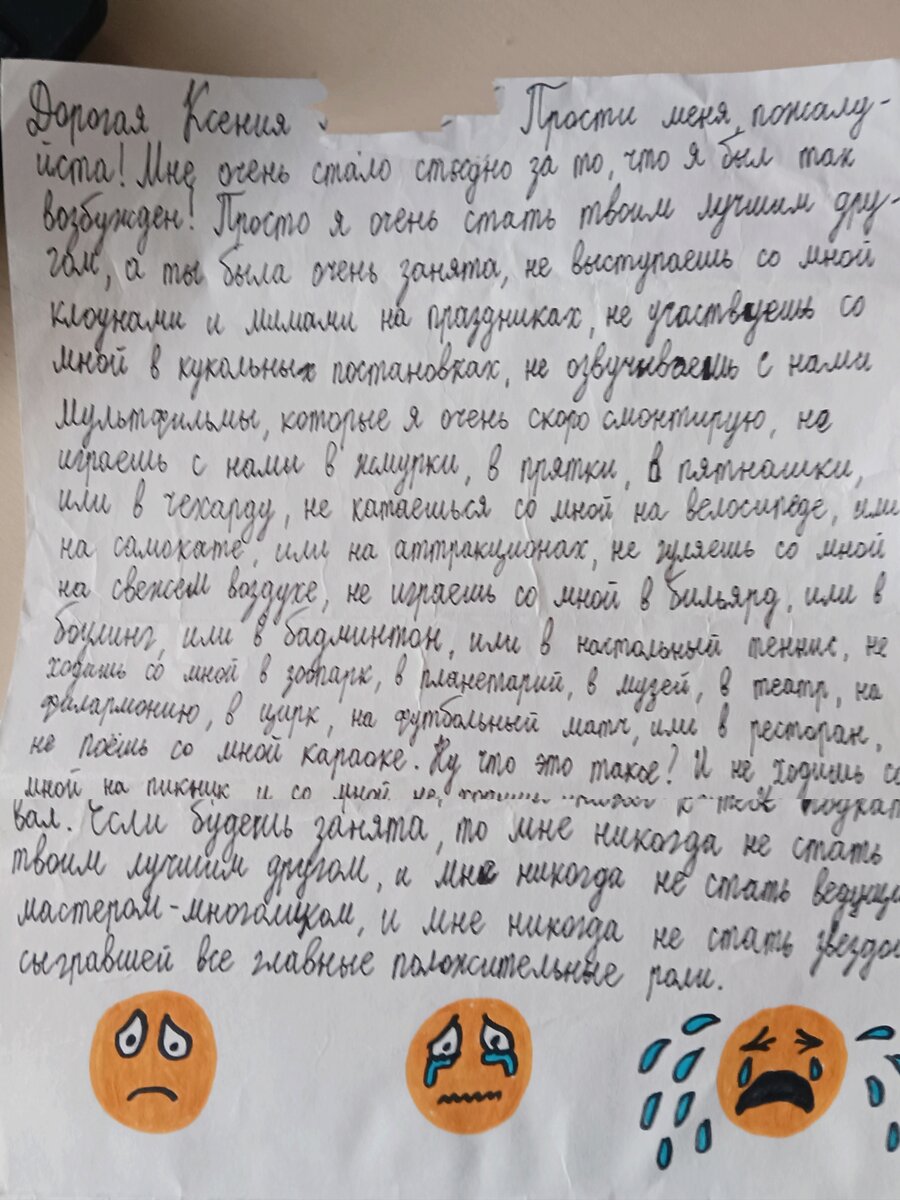 Дорогая Ксения Прости меня, пожалу-
йста! Мне очень стало стыдно за то, что я был так
возбужден! Просто я очень стать твоим лучшим дру-
гом, а ты была очень занята, не выступаешь со мной
клоунами и мимами на праздниках, не участвуешь со
мной в кукольных постановках, не озвучиваешь с нами
мультфильмы, которые я очень скоро смонтирую, не
играешь с нами в жмурки, в прятки, в пятнашки,
или в чехарду, не катаешься со мной на велосипеде, или
на самокате, или на аттракционах, не гуляешь со мной
на свежем воздухе, не играешь со мной в бильярд, или в
боулинг, или в бадминтон, или в настольный теннис, не
ходишь со мной в зоопарк, в планетарий, в музей, в театр, на
филармонию, в цирк, на футбольный матч, или в ресторан,
не поёшь со мной караоке. Ну что это такое? И не ходишь со
мной на пикник и со мной не
вал. Если будешь занята, то мне никогда не стать
твоим лучшим другом, и мне никогда не стать ведущим
мастером-многоликом, и мне никогда не стать звездой
сыгравшей все главные положительные роли.